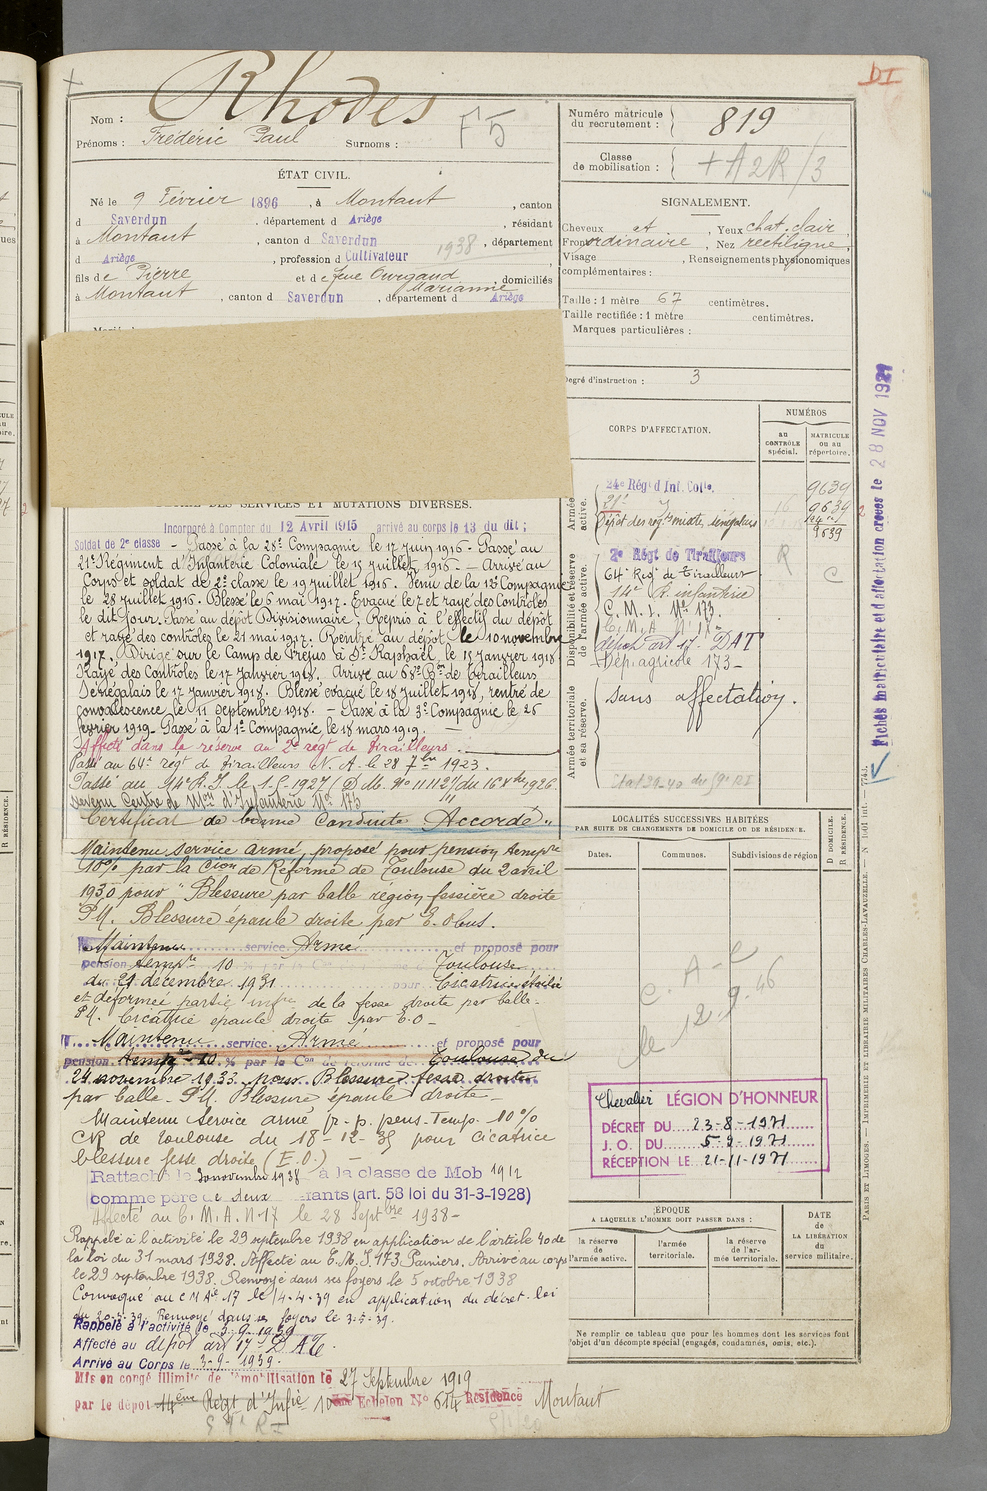 DI
Rhodes
Nom :
Prénoms : Frédéric Paul Surnoms :
F5
Numéro matricule du recrutement : 819
Classe de mobilisation : + A2R/3
ÉTAT CIVIL.
Né le 9 Février 1896, à Montaut, canton
d Saverdun, département d Ariège, résidant
à Montaut, canton d Saverdun 1938, département
d Ariège, profession d Cultivateur
fils de Pierre et de feue Ourgaud Marianne, domiciliés
à Montaut, canton d Saverdun, département d Ariège
SIGNALEMENT.
Cheveux et, Yeux chat. clair
Front ordinaire, Nez rectiligne
Visage, Renseignements physionomiques
complémentaires :
Taille : 1 mètre 67 centimètres.
Taille rectifiée : 1 mètre centimètres.
Marques particulières :
Degré d'instruction : 3
DES SERVICES ET MUTATIONS DIVERSES.
Incorporé à Compter du 12 Avril 1915 arrivé au corps le 13 du dit ;
Soldat de 2e classe – Passé à la 28e Compagnie le 17 juin 1916 - Passé au
21e Régiment d'Infanterie Coloniale le 15 juillet 1916. – Arrivé au
Corps et soldat de 2e classe le 19 juillet 1916. Venu de la 13e Compagnie
le 28 juillet 1916. Blessé le 6 mai 1917. Evacué le 7 et rayé des Contrôles
le dit jour. Passé au dépôt Divisionnaire ; Repris à l'effectif du dépôt
et rayé des contrôles le 21 mai 1917. Rentré au dépôt le 10 novembre
1917, Dirigé sur le Camp de Fréjus à St Raphaël le 15 janvier 1918
Rayé des Contrôles le 17 janvier 1918. Arrivé au 68e Bon de Tirailleurs
Sénégalais le 17 janvier 1918. Blessé évacué le 18 juillet 1918, rentré de
convalescence le 11 septembre 1918. – Passé à la 3e Compagnie le 26
février 1919. Passé à la 1e Compagnie le 18 mars 1919.
Affecté dans la réserve au 2e régt de Tirailleurs.
Passé au 64e régt de Tirailleurs N. A. le 28 7bre 1923.
Passé au 14e R.I. le 1-5-1927 (D.M. No 11112 1/11 du 16 Xbre 1926.
devenu Centre de Mon d'Infanterie No 173
Certificat de bonne Conduite Accordé"
Maintenu service armé, proposé pour pension tempre
10% par la Cion de Réforme de Toulouse du 2 avril
1930 pour "Blessure par balle région fessière droite
P.M. Blessure épaule droite par E. obus.
Maintenu service Armé et proposé pour
pension tempre 10 % Toulouse
du 21 décembre 1931 pour Cicatrice
et déformée partie infre de la fesse droite par balle-
P.M. Cicatrice épaule droite par E.O -
Maintenu service Armé et proposé pour
pension tempre 10 % par la Con de réforme de Toulouse du
24 novembre 1933 pour Blessure fesse droite
par balle - P.M. Blessure épaule droite -
Maintenu Service armé p. p. pens. Temp. 10%
CR de Toulouse du 18-12-35 pour cicatrice
blessure fesse droite (E.O.) -
Rattaché le 30 novembre 1938 à la classe de Mob 1912
comme père de deux enfants (art. 58 loi du 31-3-1928)
Affecté au C.M.A. N 17 le 28 Septbre 1938-
Rappelé à l'activité le 29 septembre 1938 en application de l'article 40 de
la loi du 31 mars 1928. Affecté au C.M.I. 173 Pamiers. Arrivé au corps
le 29 septembre 1938. Renvoyé dans ses foyers le 5 octobre 1938
Convoqué au CMAie 17 le 14-4-39 en application du décret-loi
du 20-3-39. Renvoyé dans ses foyers le 3-5-39.
Rappelé à l'activité le 3-9-1939
Affecté au dépôt art 17- DAT.
Arrivé au Corps le 3-9-1939.
Mis en congé illimité de démobilisation le 27 Septembre 1919
par le dépôt 14ème Régt d'Infie 10ème Echelon No 614 Résidence Montaut
59e RI
CORPS D'AFFECTATION.
NUMÉROS
au CONTRÔLE spécial.
MATRICULE ou au répertoire.
Armée active.
24e Régt d'Inf. Colle. 9639
21e 9639
Dépôt des régts mixte, sénégalais 9639
Disponibilité et réserve de l'armée active.
2e Régt de Tirailleurs R
64e Régt de Tirailleurs C
14e R. infanterie
C. M. I. No 173.
C. M. A. N 17
dépôt art 17. DAT
Dép. agricole 173 -
Armée territoriale et sa réserve.
Sans affectation.
LOCALITÉS SUCCESSIVES HABITÉES
PAR SUITE DE CHANGEMENTS DE DOMICILE OU DE RÉSIDENCE.
Dates.
Communes.
Subdivisions de région
D DOMICILE.
R RÉSIDENCE.
Chevalier LÉGION D'HONNEUR
DÉCRET DU 23-8-1971
J. O. DU 5-9-1971
RÉCEPTION LE 21-11-1971
ÉPOQUE
A LAQUELLE L'HOMME DOIT PASSER DANS :
la réserve de l'armée active.
l'armée territoriale.
la réserve de l'armée territoriale.
DATE de LA LIBÉRATION du service militaire.
Ne remplir ce tableau que pour les hommes dont les services font
l'objet d'un décompte spécial (engagés, condamnés, omis, etc.).
Fiches matriculaire et d'affectation créées le 28 NOV 1921
PARIS ET LIMOGES. — IMPRIMERIE ET LIBRAIRIE MILITAIRES CHARLES-LAVAUZELLE.